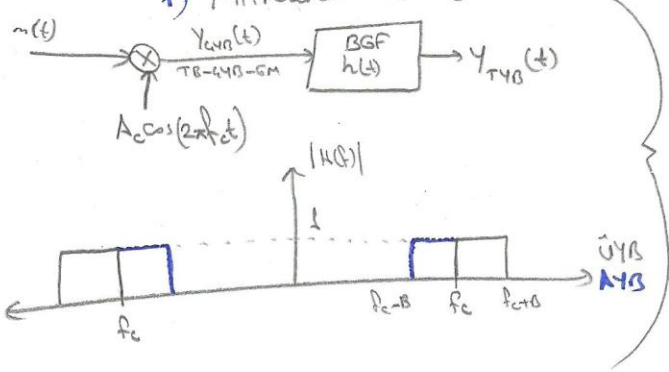 m(t)
Y_ÇYB(t)
TB-ÇYB-GM
BGF
h(t)
Y_TYB(t)
A_c cos(2πf_c t)
|H(f)|
1
ÜYB
AYB
f_c
f_c-B
f_c
f_c+B